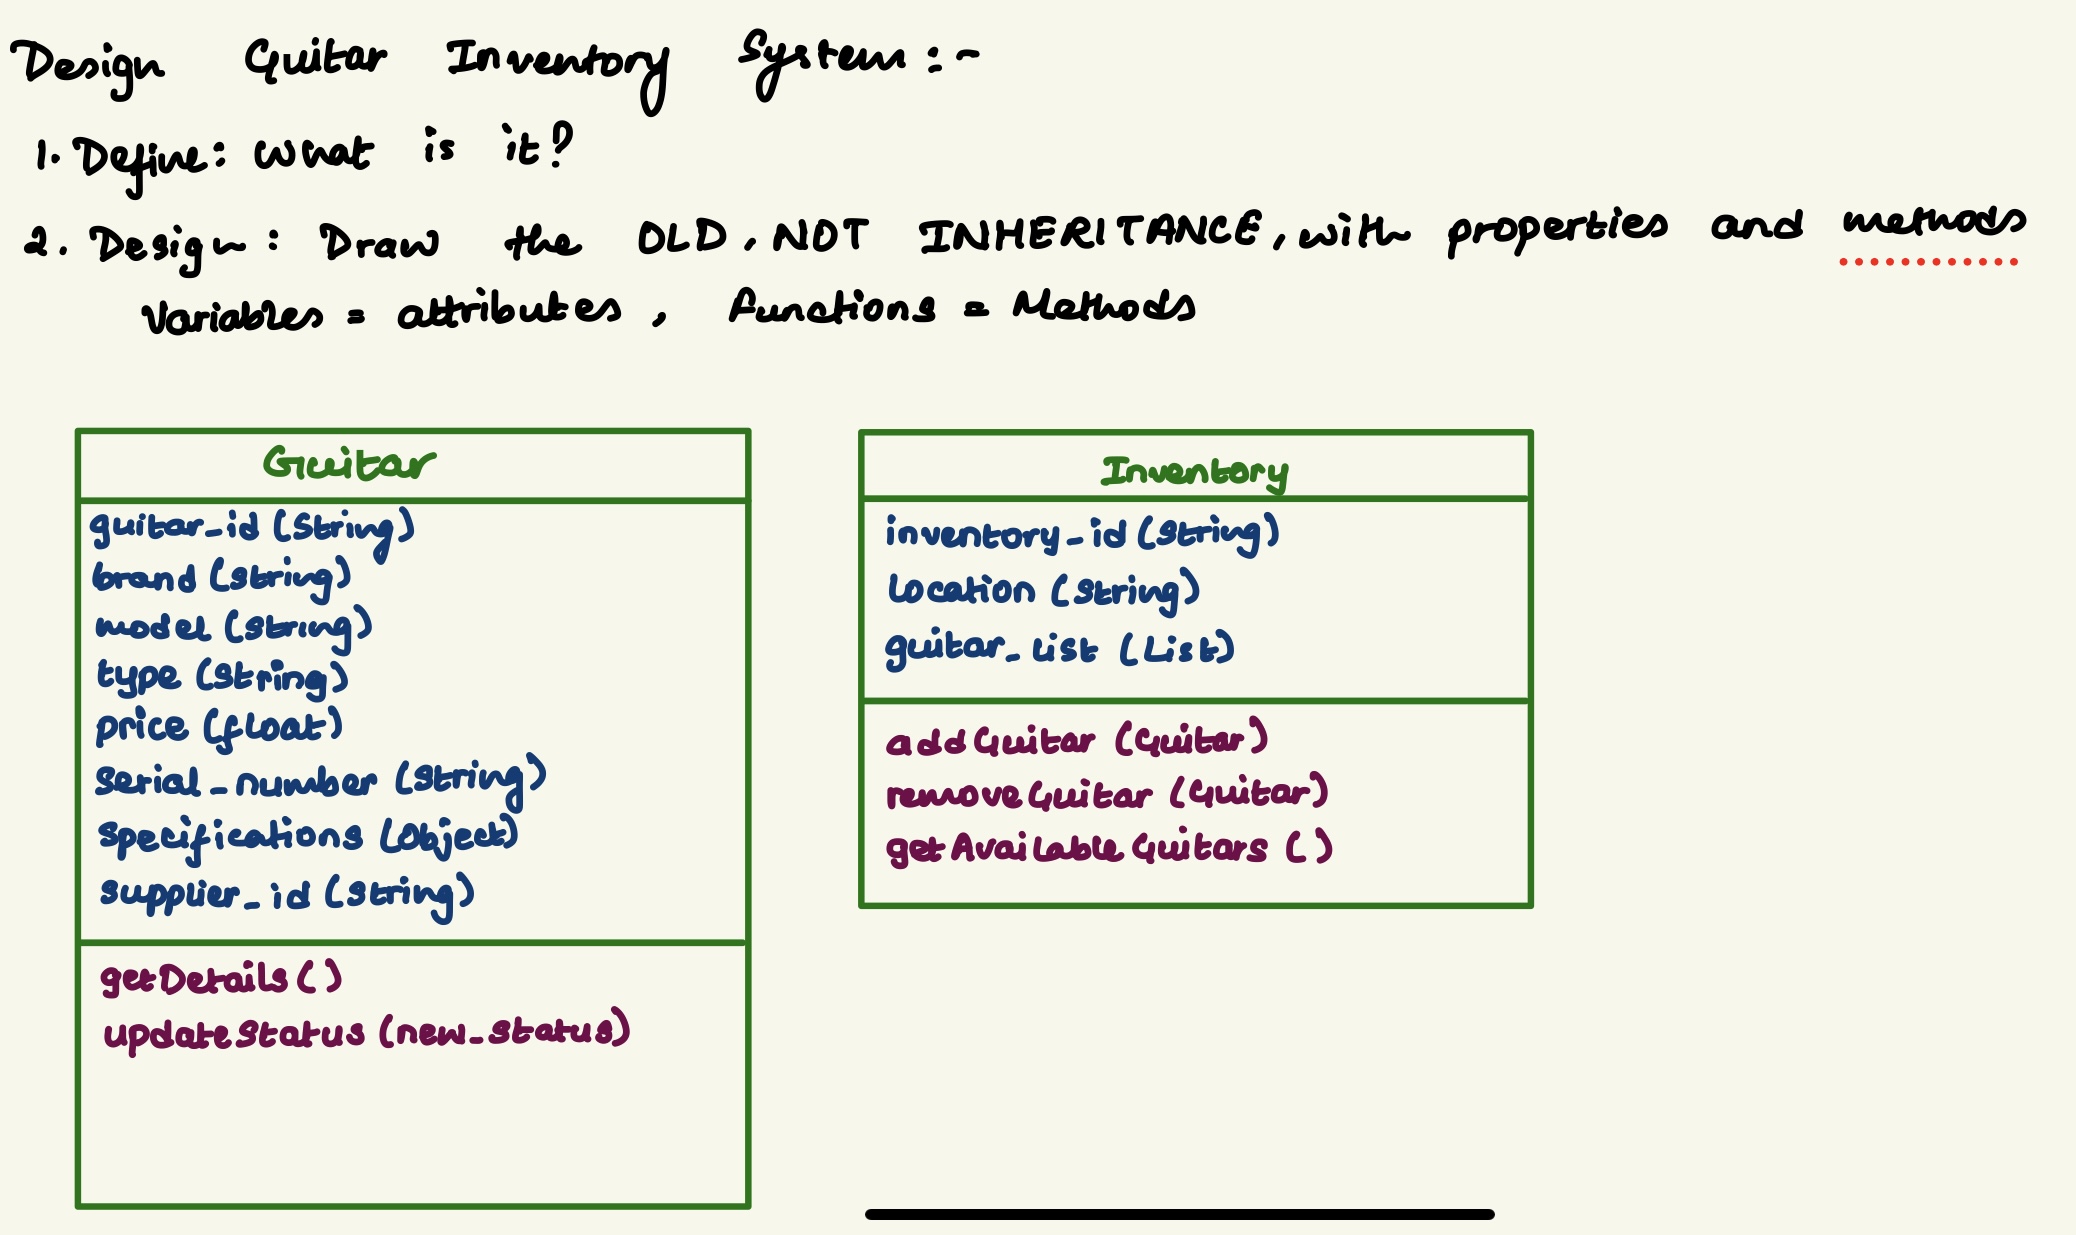 Design Guitar Inventory System :-
1. Define: What is it?
2. Design: Draw the OLD, NOT INHERITANCE, with properties and methods
Variables = attributes, functions = Methods
Guitar
guitar_id (String)
brand (String)
model (String)
type (String)
price (float)
serial_number (String)
specifications (Object)
supplier_id (String)
getDetails()
updateStatus (new_status)
Inventory
inventory_id (String)
location (String)
guitar_list (List)
addGuitar (Guitar)
removeGuitar (Guitar)
getAvailableGuitars ()